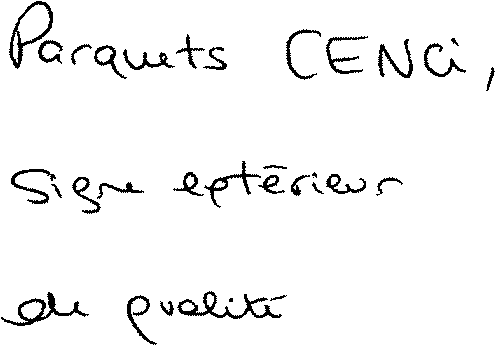 Parquets CENCi,
Signe extérieur
de qualité